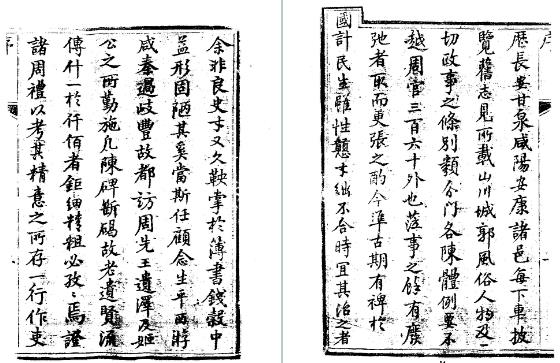 余非良史才又久鞅掌於簿書錢穀中
益形固陋其奚當斯任顧念生平
咸秦過岐豐故都訪周先王遺澤及姬
公之所勤施凡陳碑斷碣故老遺賢流
傳什一於仟佰者鉅細精粗必孜孜焉證
諸周禮以考其精意之所存一行作吏
歷長安甘泉咸陽安康諸邑每下車披
覽舊志見所載山川城郭風俗人物及一
切政事之條別類分門各陳體例要不
越周官三百六十外也蒞事之餘有廢
弛者取而更張之酌今準古期有裨於
國計民生雖性戇才絀不合時宜其治之者